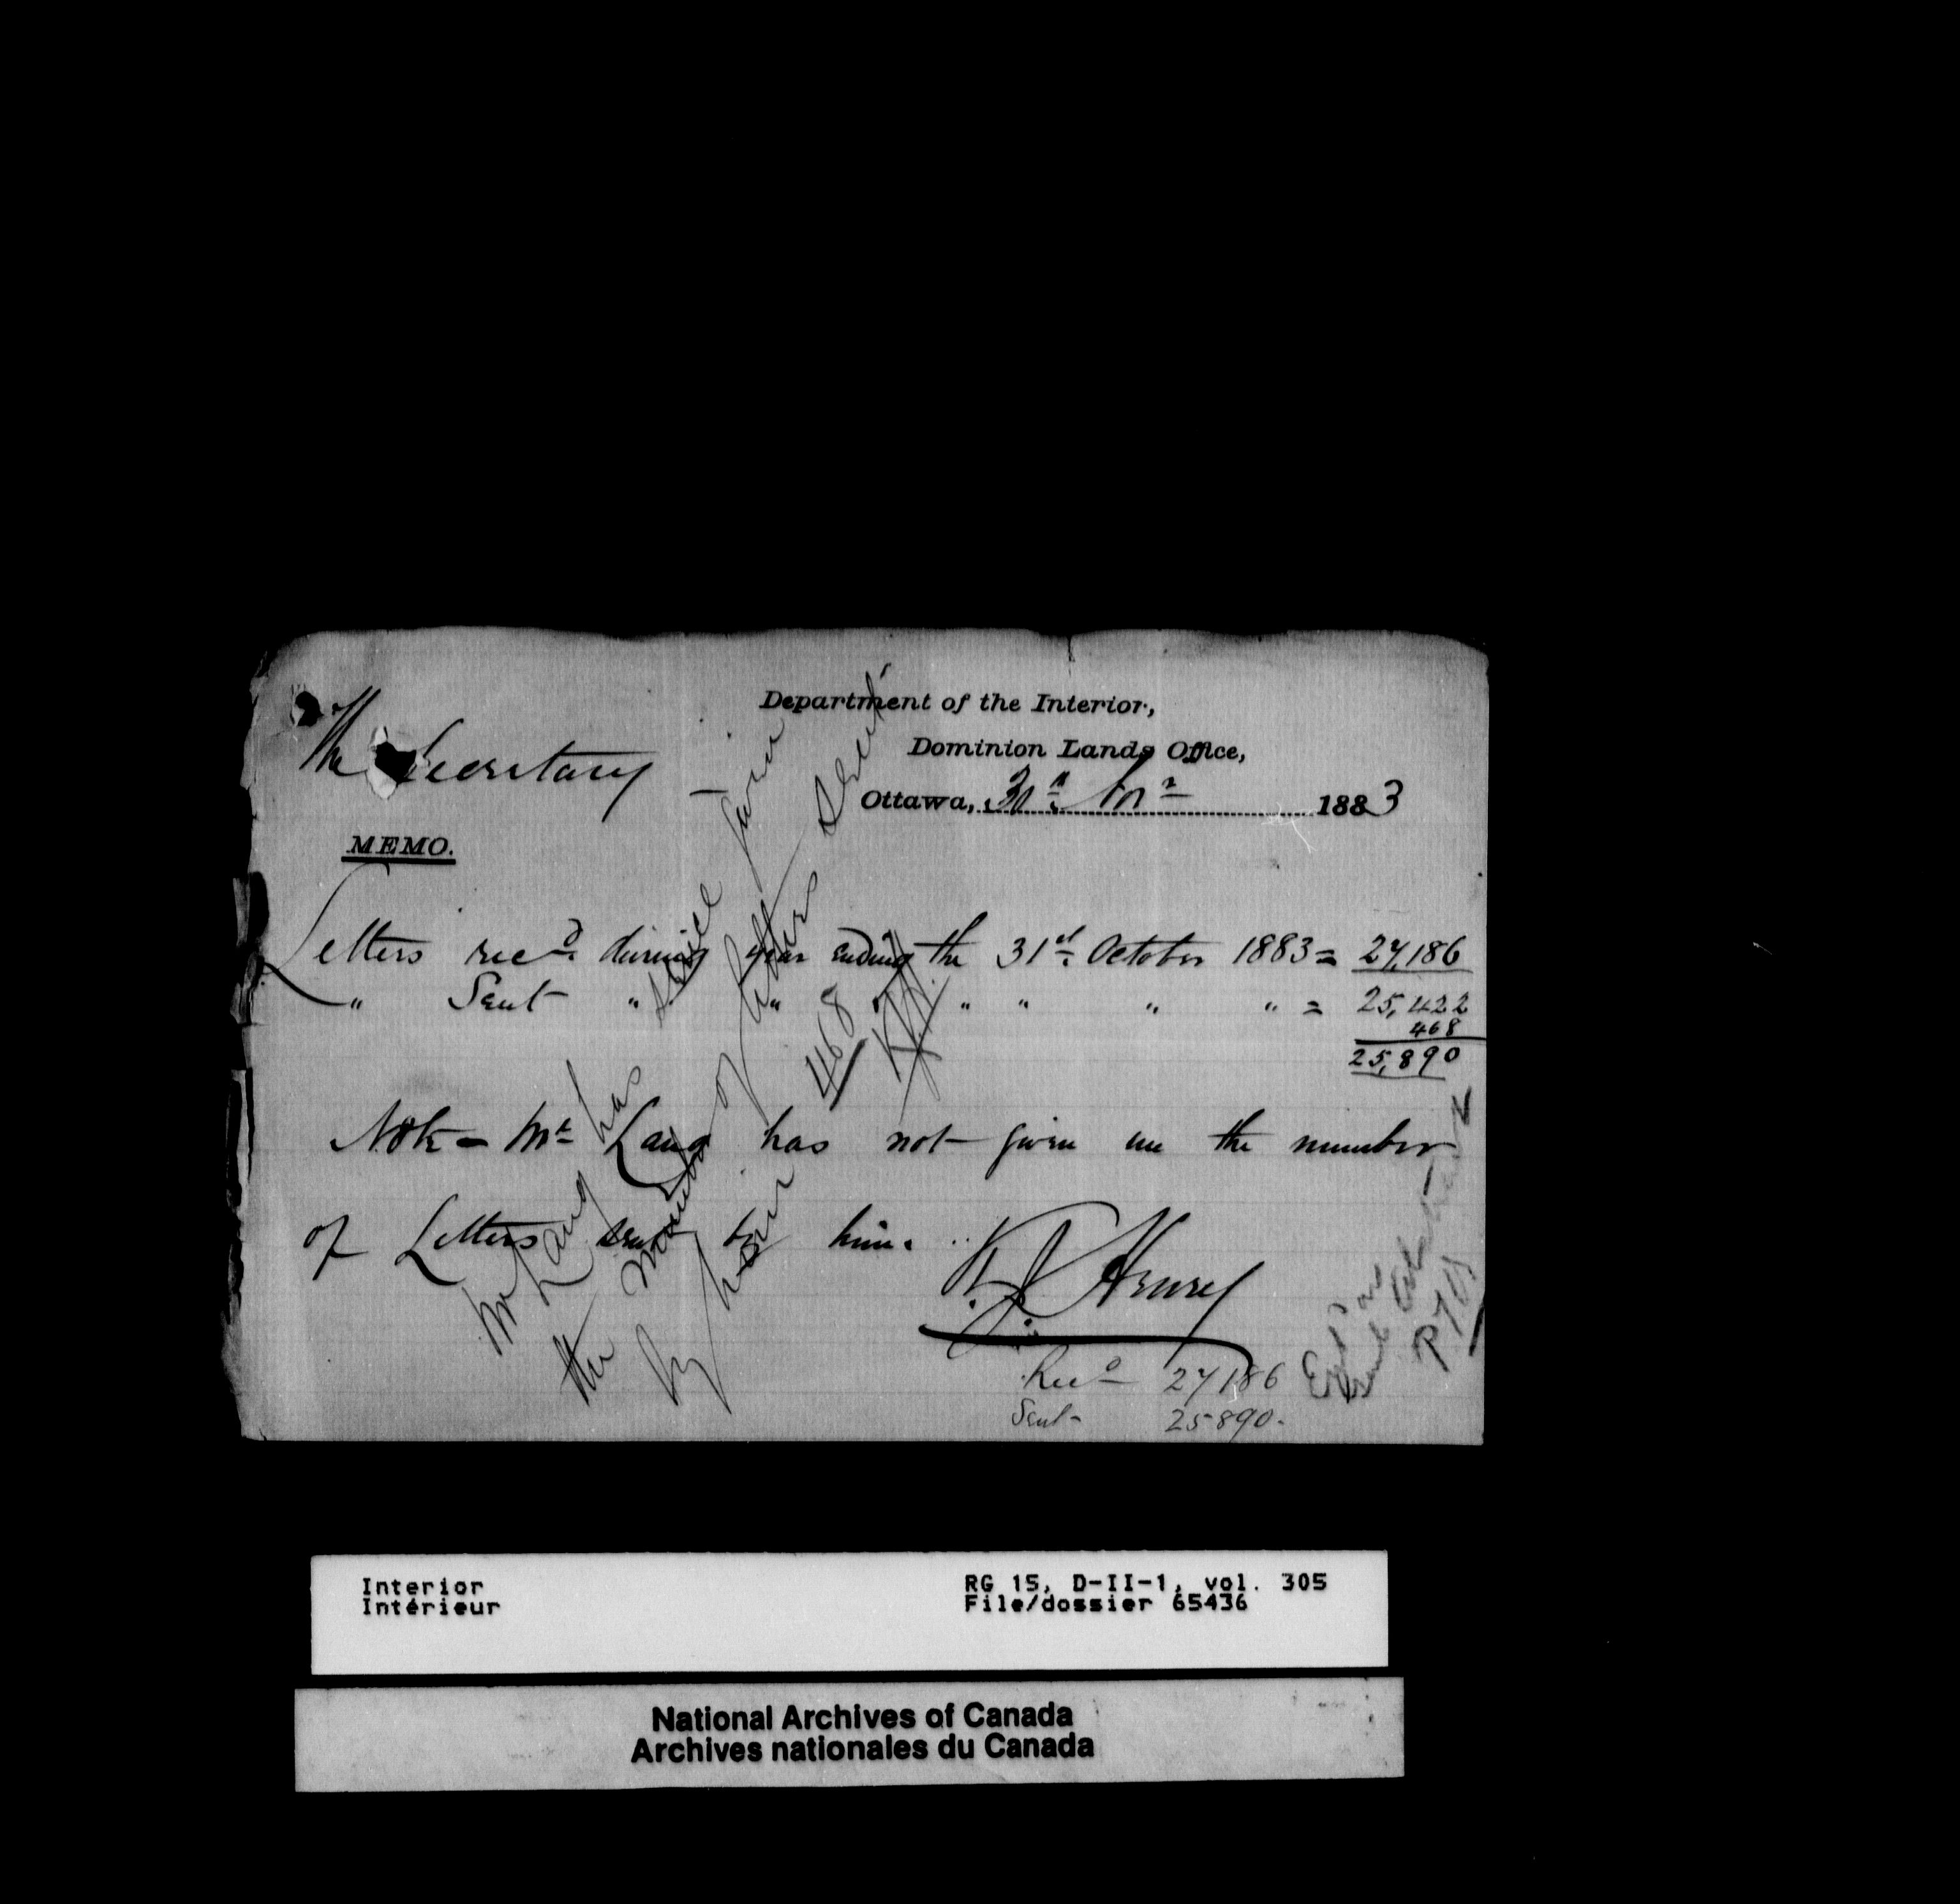 Department of the Interior,
Dominion Lands Office,
The Secretary
Ottawa, 3rd Nov 1883
MEMO.
Letters recd. during year ending the 31st. October 1883 = 27,186
" Sent " " " " " " " = 25,422
468
25,890
Note - Mr Lang has not given me the number
of Letters sent by him.
Henry
Mr Lang has since given
the number of letters sent
by him 468
Recd 27186
Sent 25890.
Interior
Intérieur
RG 15, D-II-1, vol. 305
File/dossier 65436
National Archives of Canada
Archives nationales du Canada